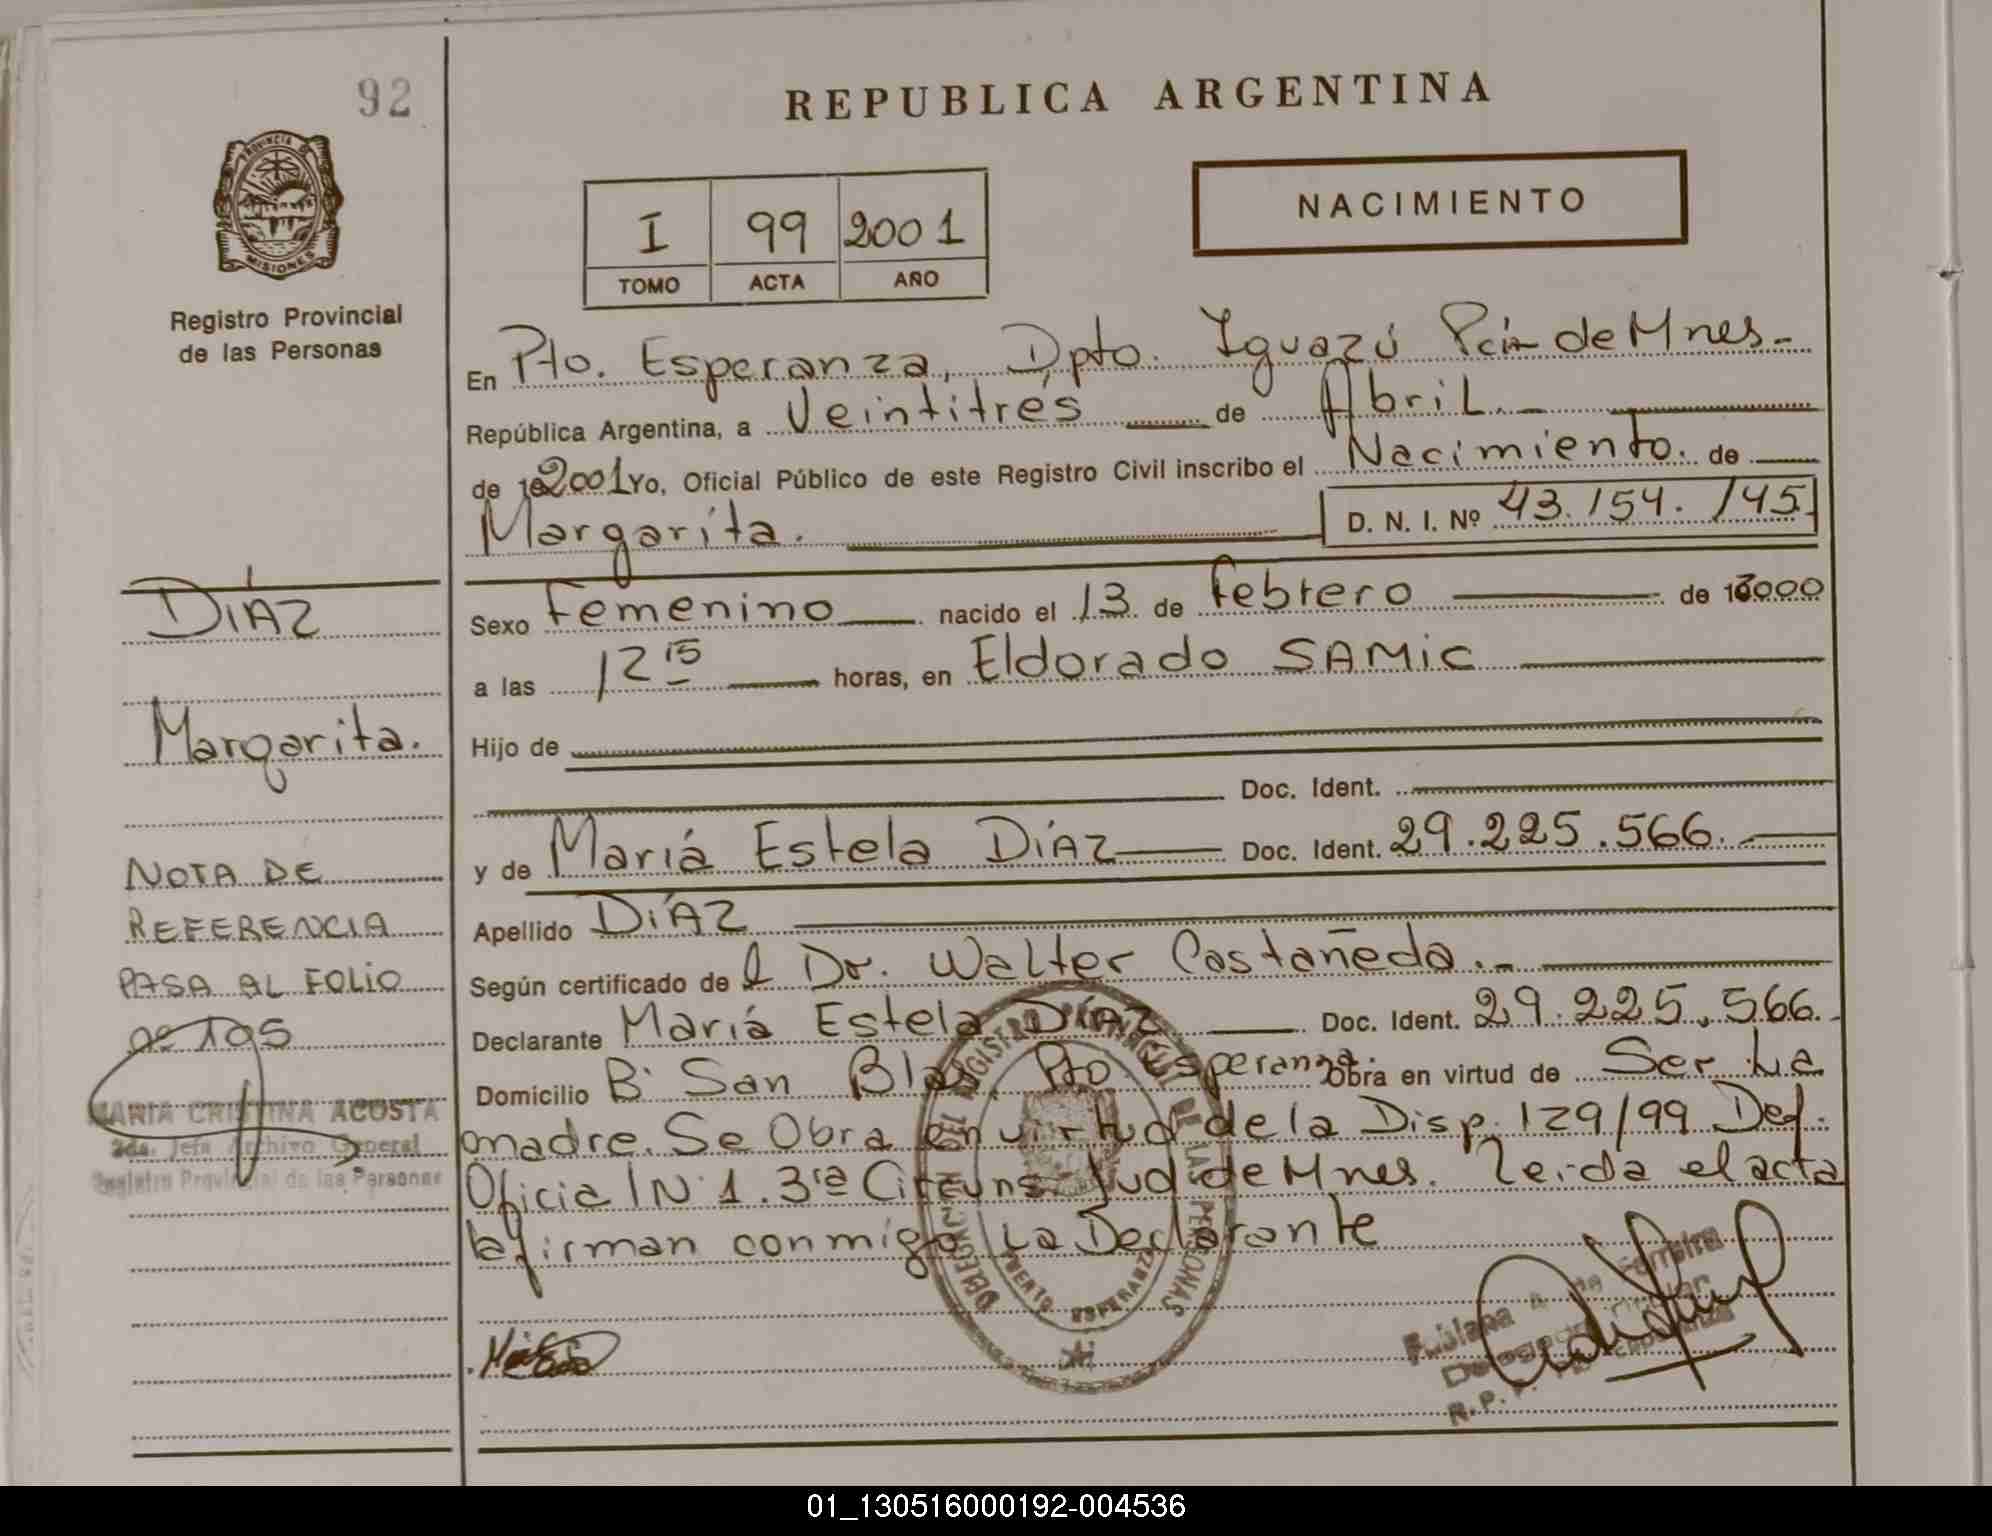 92
REPUBLICA ARGENTINA
PROVINCIA DE
MISIONES
Registro Provincial
de las Personas
I 99 2001
TOMO ACTA AÑO
NACIMIENTO
En Pto. Esperanza, Dpto. Iguazú Pcia de Mnes.-
República Argentina, a Veintitrés de Abril.-
de 2001 Yo, Oficial Público de este Registro Civil inscribo el Nacimiento. de
Margarita. D. N. I. Nº 43.154.145.
Sexo Femenino nacido el 13 de Febrero de 2000
a las 12 15 horas, en Eldorado SAMIC
Hijo de
Doc. Ident.
y de Mariá Estela DíAZ Doc. Ident. 29.225.566.-
Apellido DíAZ
Según certificado de l Dr. Walter Castañeda.-
Declarante Mariá Estela DíAZ Doc. Ident. 29.225.566.-
Domicilio B. San Blas Pto Esperanza. Obra en virtud de Ser La
madre. Se Obra en virtud de la Disp. 129/99 Def.
Oficial N. 1. 3ra Circuns. Jud de Mnes. Leida el acta
la firman conmigo La Declarante
DíAZ
Margarita.
NOTA DE
REFERENCIA
PASA AL FOLIO
DE 195
MARIA CRISTINA ACOSTA
2da. Jefa Archivo General
Registro Provincial de las Personas
REGISTRO PROVINCIAL DE LAS PERSONAS
DELEGACION
PUERTO ESPERANZA
01_130516000192-004536